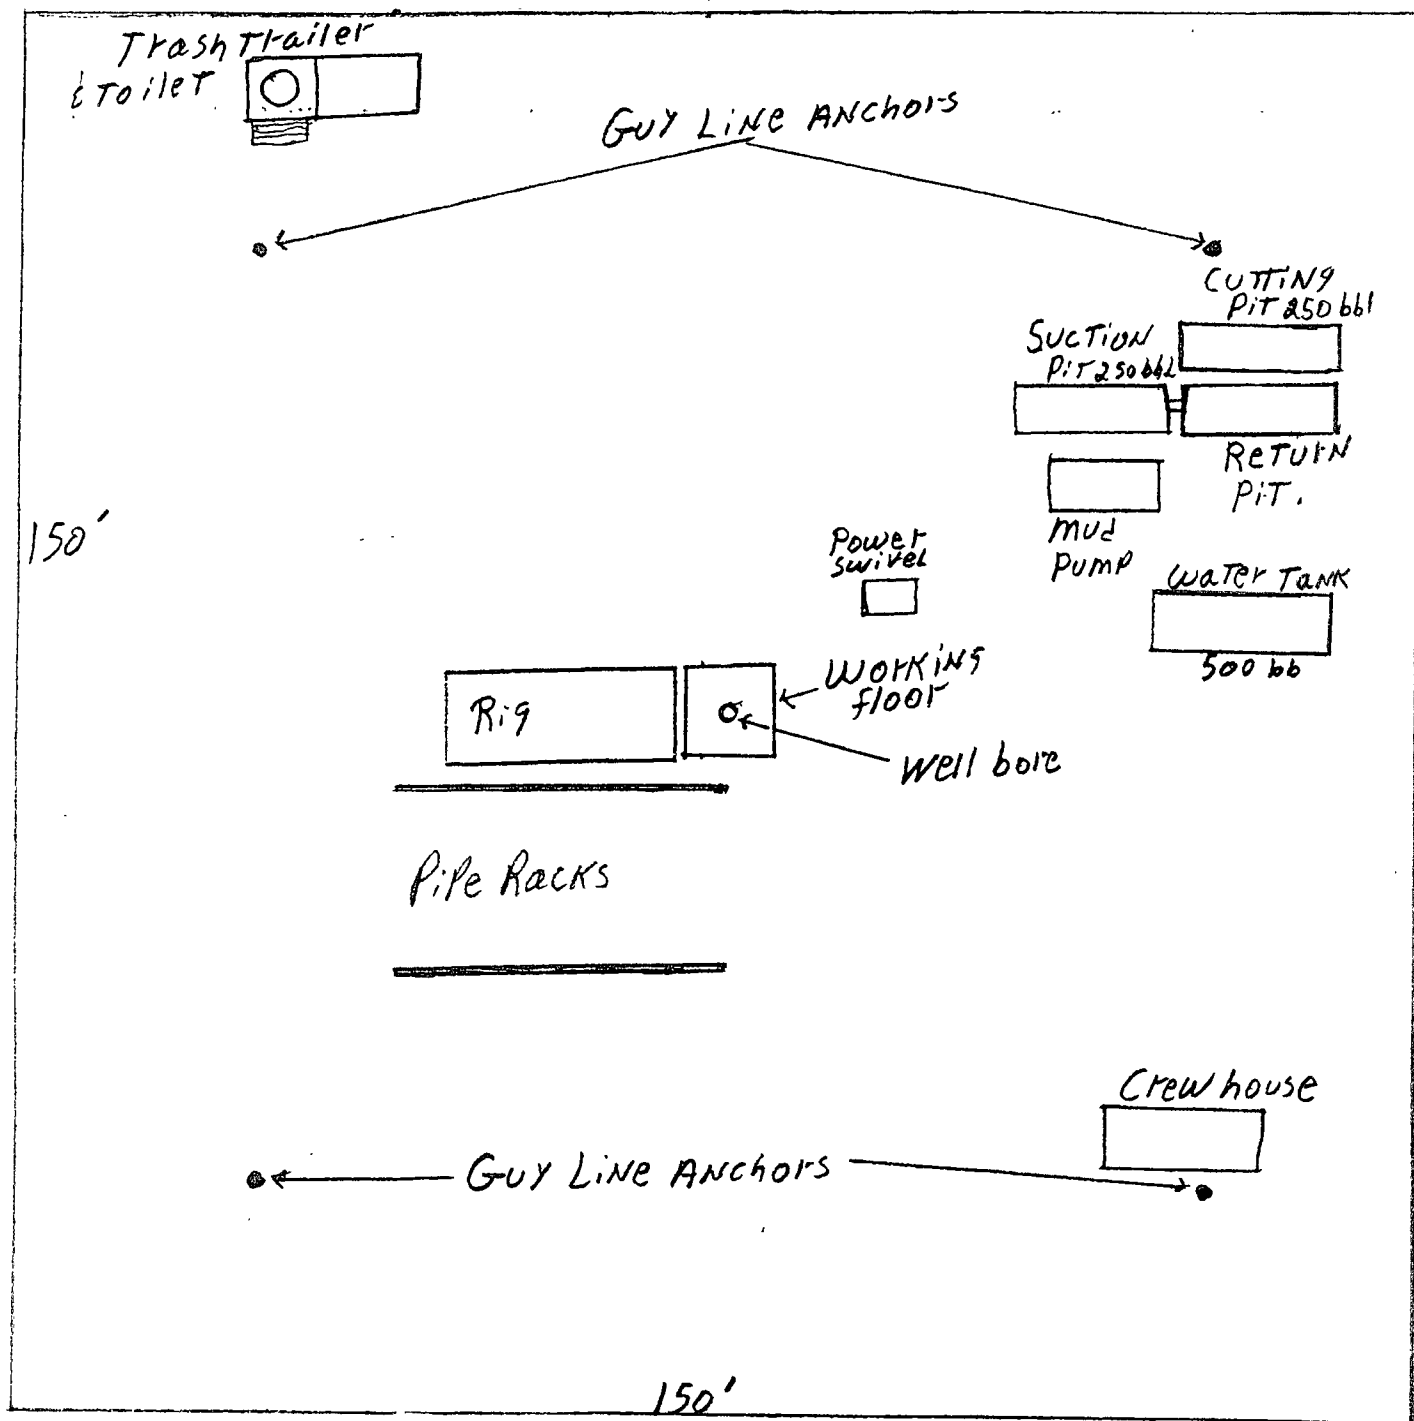 Trash Trailer
& Toilet
Guy Line Anchors
Cutting
Pit 250 bbl
Suction
Pit 250 bbl
Return
Pit.
mud
Pump
150'
Power
swivel
Water Tank
500 bb
Rig
Working
floor
Well bore
Pipe Racks
Crew house
Guy Line Anchors
150'